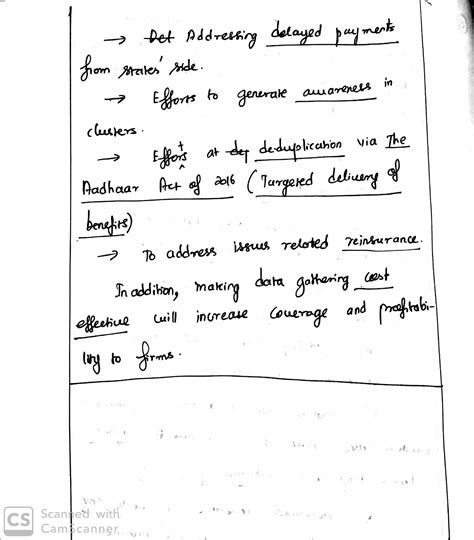 → Det Addressing delayed payments
from states' side.
→ Efforts to generate awareness in
clusters.
→ Efforts at dep deduplication via The
Aadhaar Act of 2016 (Targeted delivery of
benefits)
→ To address issues related reinsurance.
In addition, making data gathering cost
effective will increase coverage and profitabi-
lity to firms.
CS Scanned with
CamScanner